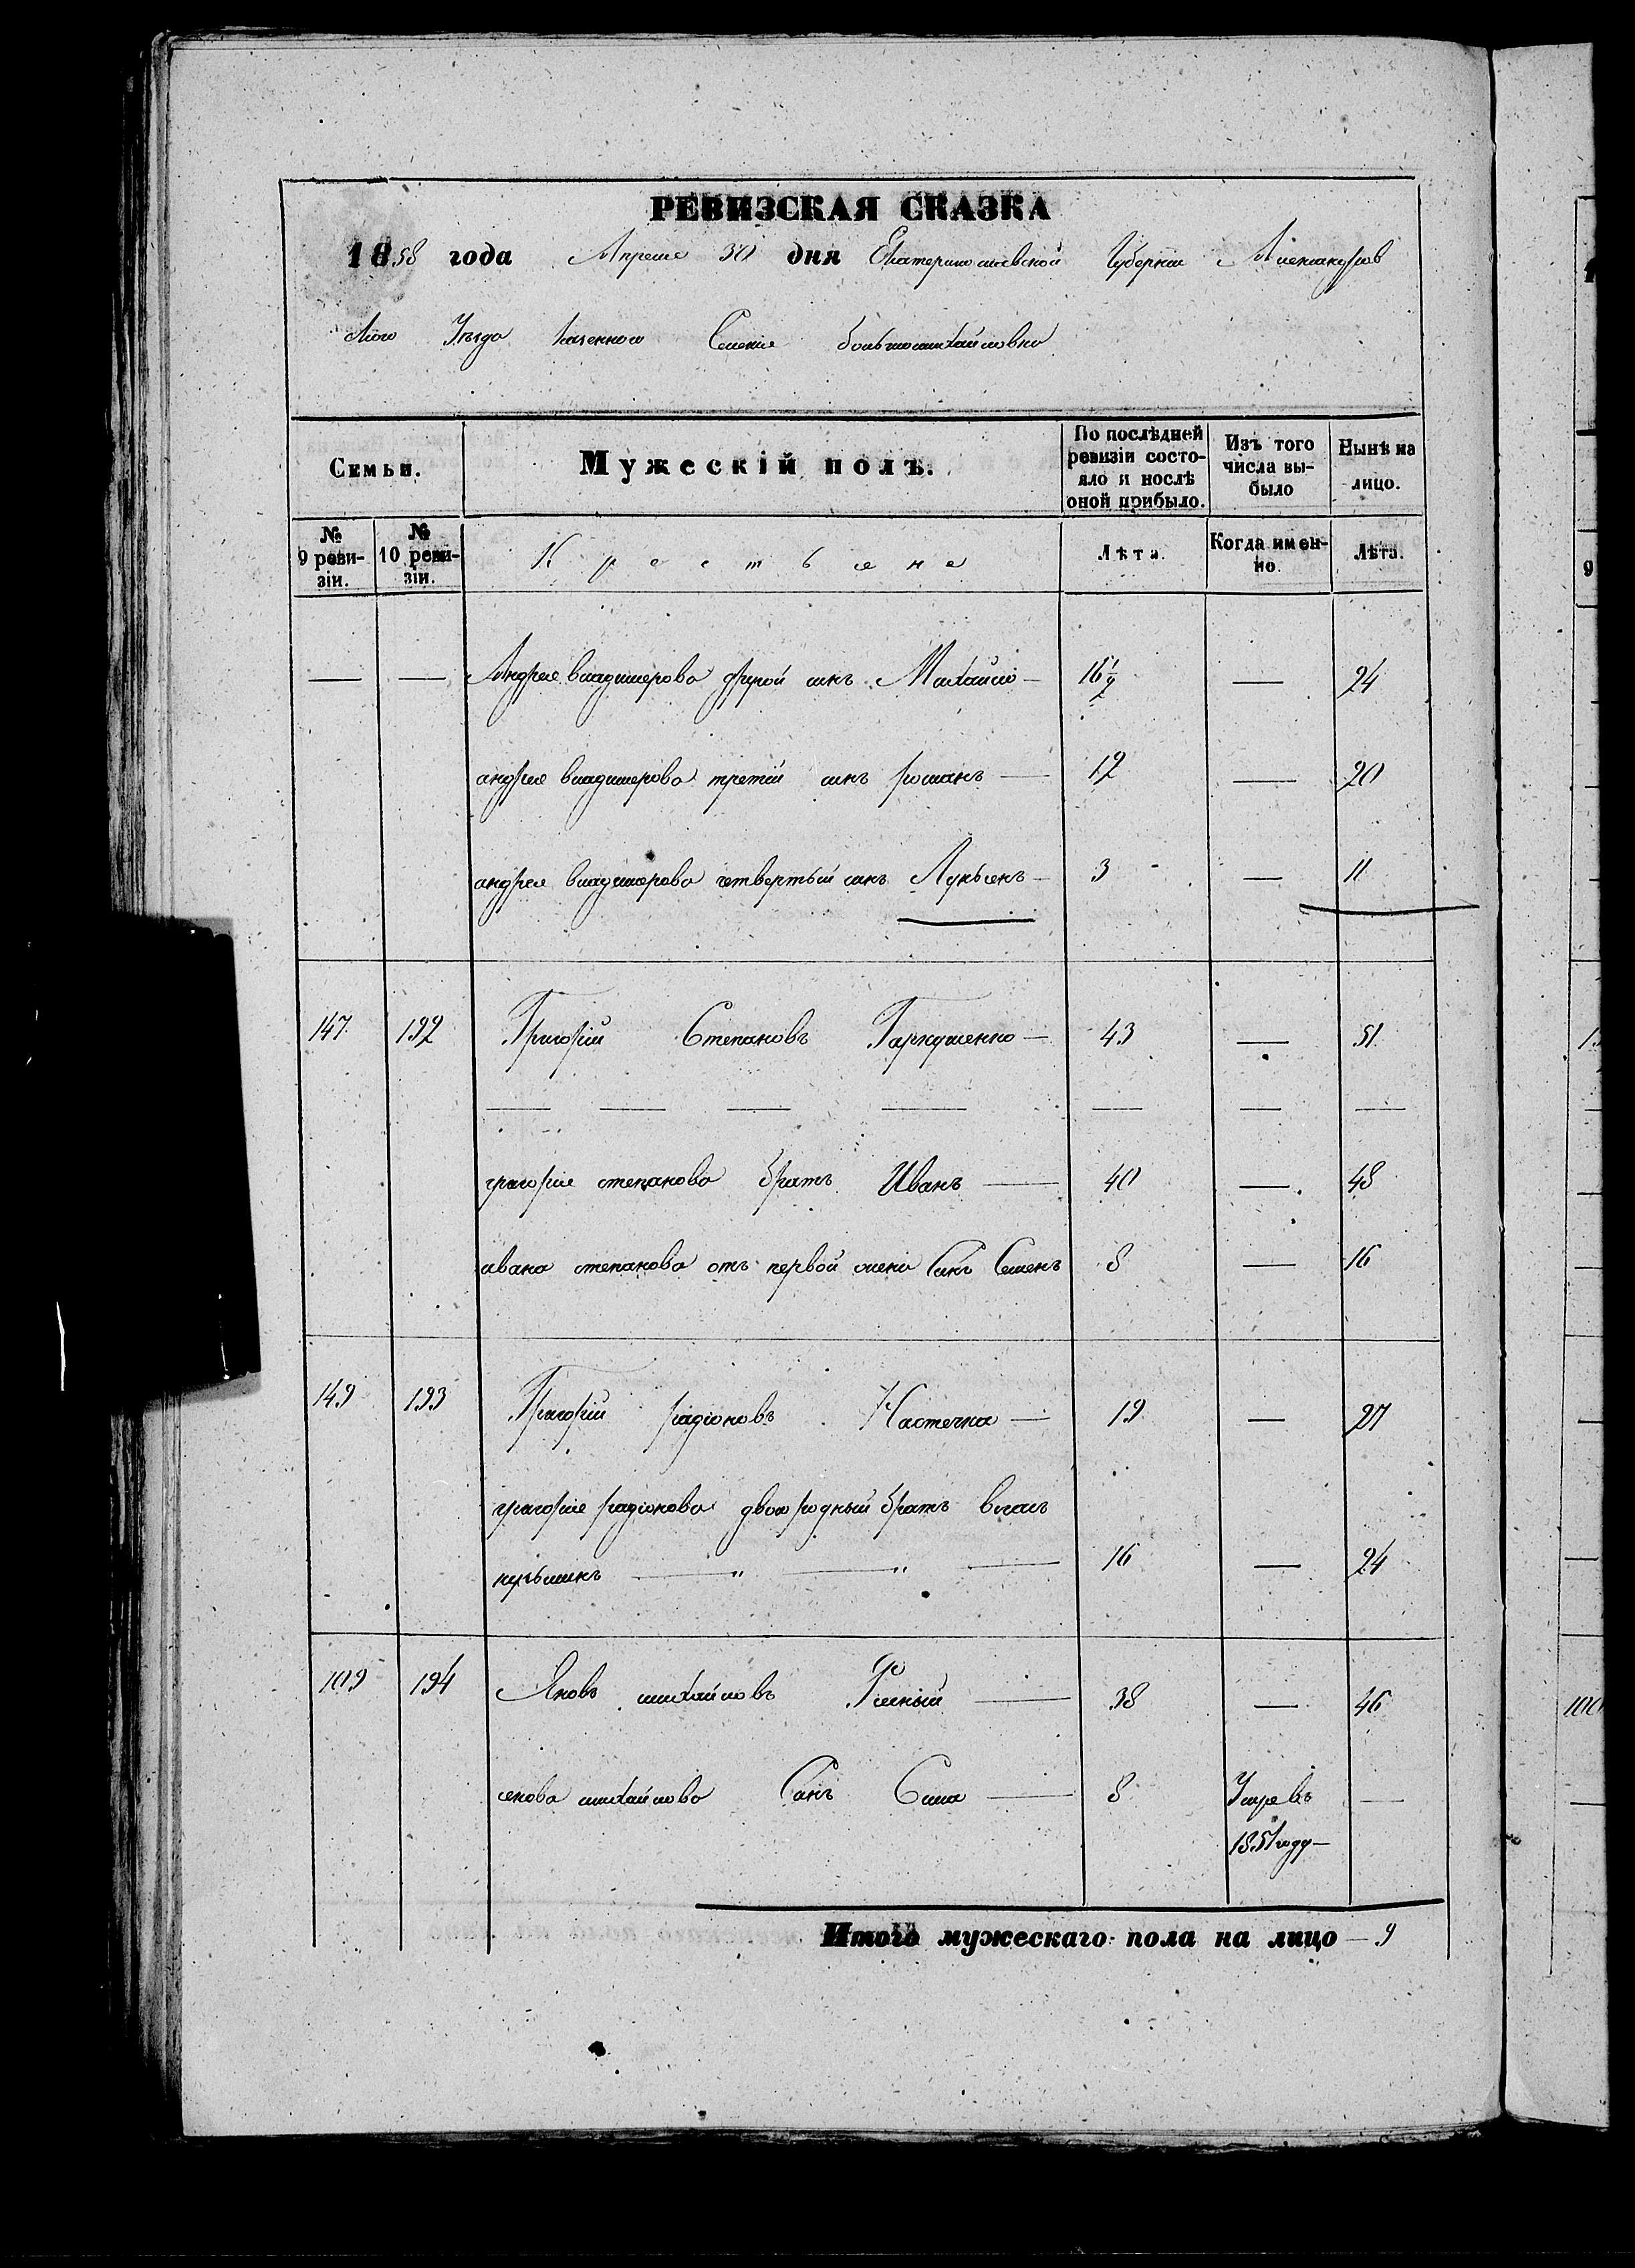 РЕВИЗСКАЯ СКАЗКА
1858 года Апреля 30 дня Екатеринославской Губерніи Александров
ского Уезда казенного Селенія большомихайловка
Семьи. Мужескій полъ. По послѣдней ревизіи состояло и послѣ оной прибыло. Изъ того числа выбыло Нынѣ на лицо.
№ 9 ревизіи. № 10 ревизіи. Крестьяне Лѣта. Когда именно. Лѣта.
— — Андрея владимерова другой синъ Михайло — 16 1/2 — 24
андрея владимерова третій синъ романъ — 12 — 20
андрея владимерова четвертый синъ Лукьянъ — 3 — 11
147 192 Григорій Степановъ Гаркушенко — 43 — 51
— — — — — — —
григорія степанова братъ Иванъ — 40 — 48
ивана степанова отъ первой жени Синъ Семенъ 8 — 16
149 193 Григорій радіоновъ Костечка — 19 — 27
григорія радіонова двоюродный братъ власъ
кузьминъ — " — " — 16 — 24
109 194 Яковъ михайловъ — 38 — 46
якова михайлова Синъ Сила — 8 Умре въ —
1851 году —
Итого мужескаго пола на лицо — 9